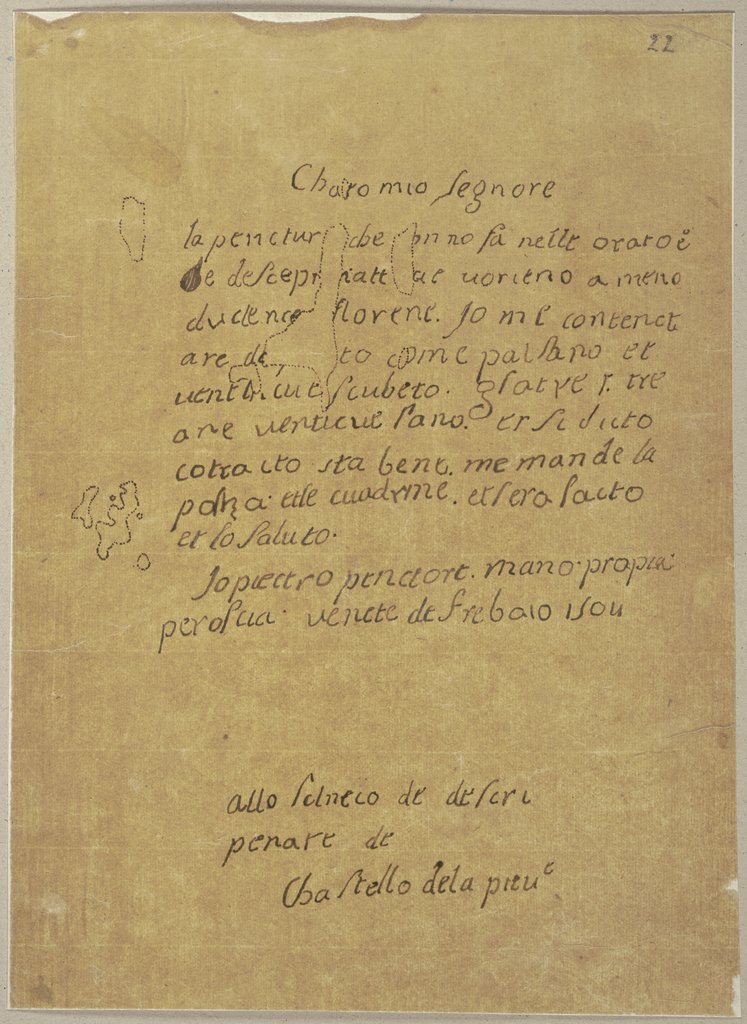 22
Charo mio segnore
la penctur che onno fa nelle oratoe
de desepr iatte ae uorieno a meno
ducience florene. Jo me contenct
are de to come paisano et
uenticue scubeto. glatre j. tre
are venticue l'ano. et si dicto
cotracto sta bene. me mande la
polza. ette cuadrine. et sera facto
et lo saluto.
Jo piectro penctore. mano propia
peroscia. vencte de frebaio isou
allo scineco de desceri
penate de
Chastello dela pieue